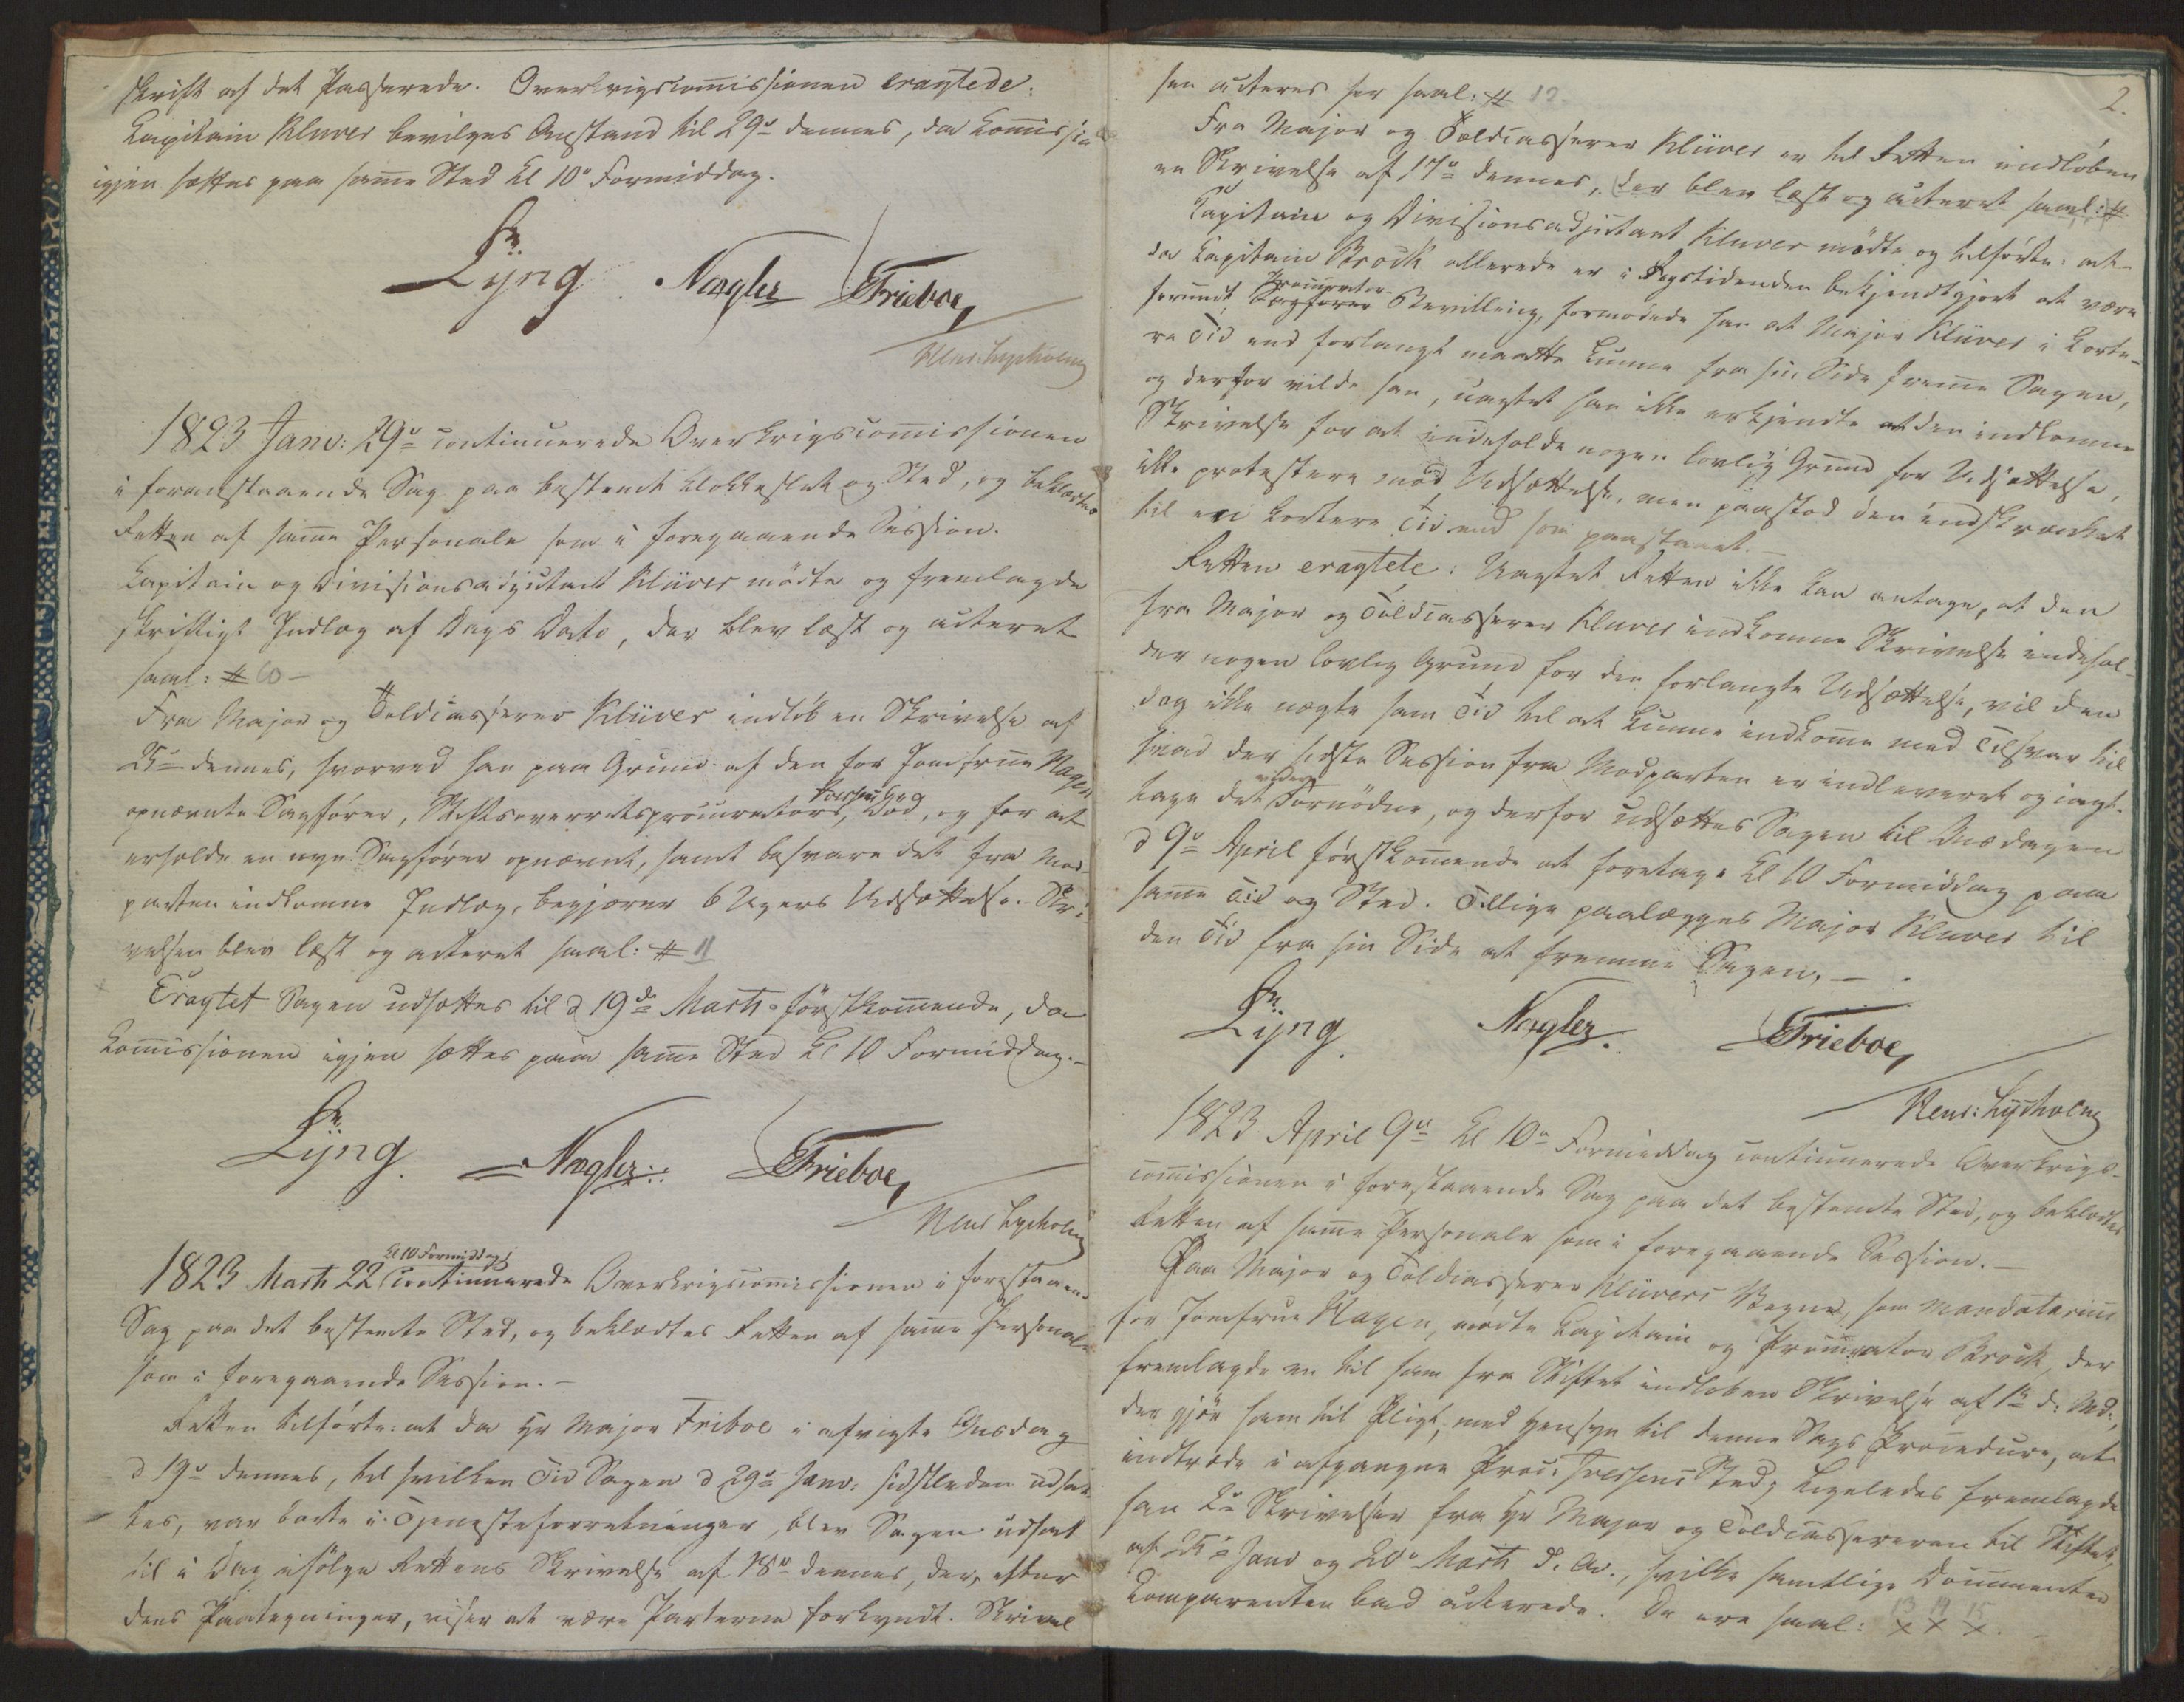 skrift af det Passerede. Overkrigscom̄issionen eragtede:
Kapitain Klüver bevilges Anstand til 29de dennes, da Kom̄issio
igjen sættes paa sam̄e Sted Kl 10 Formiddag.
Lyng Nægler Frieboe
Hens: Lysholm
1823 Janv: 29de continuerede Overkrigscom̄issionen
i foranstaaende Sag paa bestemt Klokkeslet og Sted, og beklædtes
Retten af sam̄e Personale som i foregaaende Session.
Kapitain og Divisionsadjutant Klüver mødte og fremlagde
skriftligt Indlæg af Dags Dato, der blev læst og acteret
saal: # 10 –
Fra Major og Toldcasserer Klüver indløb en Skrivelse af
25de dennes, hvorved han paa Grund af den for Jomfrue Hagen
opnævnte Sagfører, Stiftsoverretsprocurators, Død, og for at
erholde en nye Sagfører opnævnt, samt besvare det fra Mod-
parten indkomne Indlæg, begjærer 6 Ugers Udsættelse. Skri-
velsen blev læst og acteret saal: # 11
Eragtet Sagen udsættes til d 19de Marti førstkom̄ende, da
Kom̄issionen igjen sættes paa sam̄e Sted Kl 10 Formiddag. –
Lyng. Nægler. Frieboe
Hens Lysholm
Kl 10 Formiddag
1823 Marti 22 continuerede Overkrigscom̄issionen i forestaaen-
Sag paa det bestemte Sted, og beklædtes Retten af sam̄e Personale
som i foregaaende Session. –
Retten tilførte: at da Hr Major Friboe i afvigte Onsdag
d 19de dennes, til hvilken Tid Sagen d 29de Janv: sidstleden udsat-
tes, var borte i Tjenesteforretninger, blev Sagen udsat
til i Dag ifølge Rettens Skrivelse af 18de dennes, der, efter
dens Paategninger, viser at være Parterne forkyndt. Skrivel
2.
sen acteres her saal: # 12.
Fra Major og Toldcasserer Klüver er til Retten indløben
en Skrivelse af 17de dennes, der blev læst og acteret saal: #
Kapitain og Divisionsadjutant Klüver mødte og tilførte: at
da Kapitain Brock allerede er i Rygstidenden bekjendtgjort at være
forundt Procurator Bevilling, formodede han at Major Klüver i korte-
re Tid end forlangt maatte kunne fra sin Side frem̄e Sagen,
og derfor vilde han, uagtet han ikke erkjendte at den indkomne
Skrivelse for at indeholde nogen lovlig Grund for Udsættelse,
ikke protestere mod Udsættelse, men paastod den indskrænket
til en kortere Tid end som paastaaet. –
Retten eragtete: Uagtet Retten ikke kan antage, at den
fra Major og Toldcasserer Klüver indkomne Skrivelse indehol-
der nogen lovlig Grund for den forlangte Udsættelse, vil den
dog ikke nægte ham Tid til at kunne indkom̄e med Tilsvar til
hvad der sidste Session fra Modparten er indleveret og iagt-
tage det videre Fornødne, og derfor udsættes Sagen til Onsdagen
d 9de April førstkom̄ende at foretages Kl 10 Formiddag paa
sam̄e Tid og Sted. Tillige paalægges Major Klüver til
den Tid fra sin Side at fremme Sagen. –
Lyng. Nægler. Frieboe
Hens: Lysholm
1823 April 9de Kl 10 Formiddag continuerede Overkrigs-
com̄issionen i forestaaende Sag paa det bestemte Sted, og beklædtes
Retten af sam̄e Personale som i foregaaende Session. –
Paa Major og Toldcasserer Klüvers Vegne, som Mandatarius
for Jomfrue Hagen, mødte Kapitain og Procurator Brock, der
fremlagde en til ham fra Stiftet indløben Skrivelse af 1ste d: Md:,
der gjør ham til Pligt, med Hensyn til denne Sags Procedure, at
indtræde i afgangne Proc: Sted; Ligeledes fremlagde
han 2de Skrivelser fra Hr Major og Toldcassereren til Stiftet,
af 25de Janv og 20de Marti d. A., hvilke samtlige Documenter
Comparenten bad acterede. De ere saal: 13 14 15